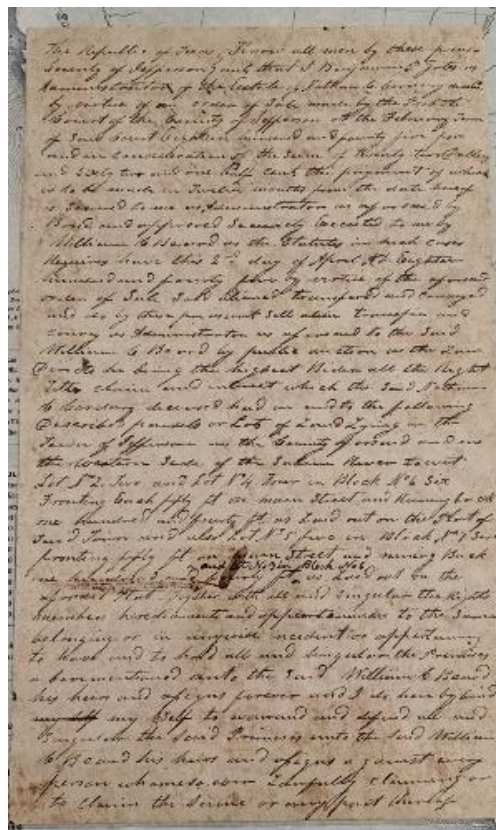 The Republic of Texas, Know all men by these presents
County of Jefferson, that I Benjamin Yates as
Administrator of the Estate of Nathan C
by virtue of an order of Sale made by the Probate
Court of the County of Jefferson at the February Term
of Said Court Eighteen hundred and forty five for
and in consideration of the Sum of twenty two Dollars
and Sixty two and one half cents the payment of which
is to be made in Twelve months from the date hereof
is Secured to me as Administrator as aforesaid by
Bond and approved Security Executed to me by
William C Beard as the Statutes in such cases
Requires have this 2nd day of April AD Eighteen
hundred and forty five by virtue of the aforesaid
order of Sale Sold transfered and conveyed
and do by these present Sell alien transfer and
convey as Administrator as aforesaid to the Said
William C Beard by public auction as the Law
Directs he being the highest Bider all the Right
Title claim and intrest which the Said Nathan
C deceased had in and to the following
Described parcels or Lots of Land Lying in the
Town of Jefferson in the County aforesaid and on
the Western Side of the River to wit
Lot No 2 Two and Lot No 4 Four in Block No 6 Six
Fronting Each fifty ft on main Street and Running back
one hundred and ft as Laid out on the Plat of
Said Town and also Lot No 5 five in Block No
fronting fifty ft on Street and runing Back
and Lot No 3 in Block No 6
one hundred ft as Laid out on the
aforesaid Plat Together with all and Singular the Rights
members hirediments and appertanances to the Same
belonging or in anywise incident or appertaining
to have and to hold all and Singular the Premises
mentioned unto the Said William C Beard
his heirs and assigns forever and I do here by bind
my Self to warrand and defend all and
Singular the Said Premises unto the Said William
C Beard his heirs and assigns against every
person whomesoever Lawfully claiming or
to claim the Same or any part thereof